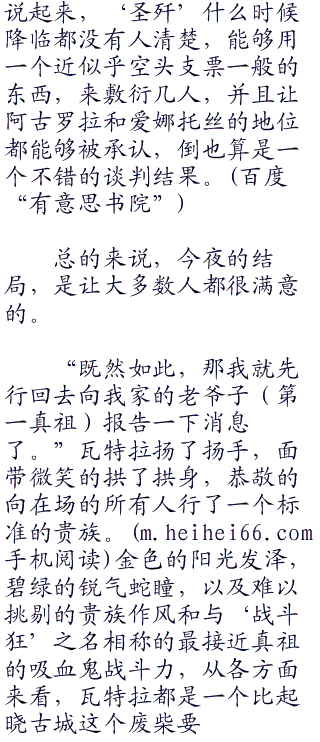 说起来，‘圣歼’什么时候
降临都没有人清楚，能够用
一个近似乎空头支票一般的
东西，来敷衍几人，并且让
阿古罗拉和爱娜托丝的地位
都能够被承认，倒也算是一
个不错的谈判结果。(百度
“有意思书院”)
总的来说，今夜的结
局，是让大多数人都很满意
的。
“既然如此，那我就先
行回去向我家的老爷子（第
一真祖）报告一下消息
了。”瓦特拉扬了扬手，面
带微笑的拱了拱身，恭敬的
向在场的所有人行了一个标
准的贵族。(m.heihei66.com
手机阅读)金色的阳光发泽，
碧绿的锐气蛇瞳，以及难以
挑剔的贵族作风和与‘战斗
狂’之名相称的最接近真祖
的吸血鬼战斗力，从各方面
来看，瓦特拉都是一个比起
晓古城这个废柴要